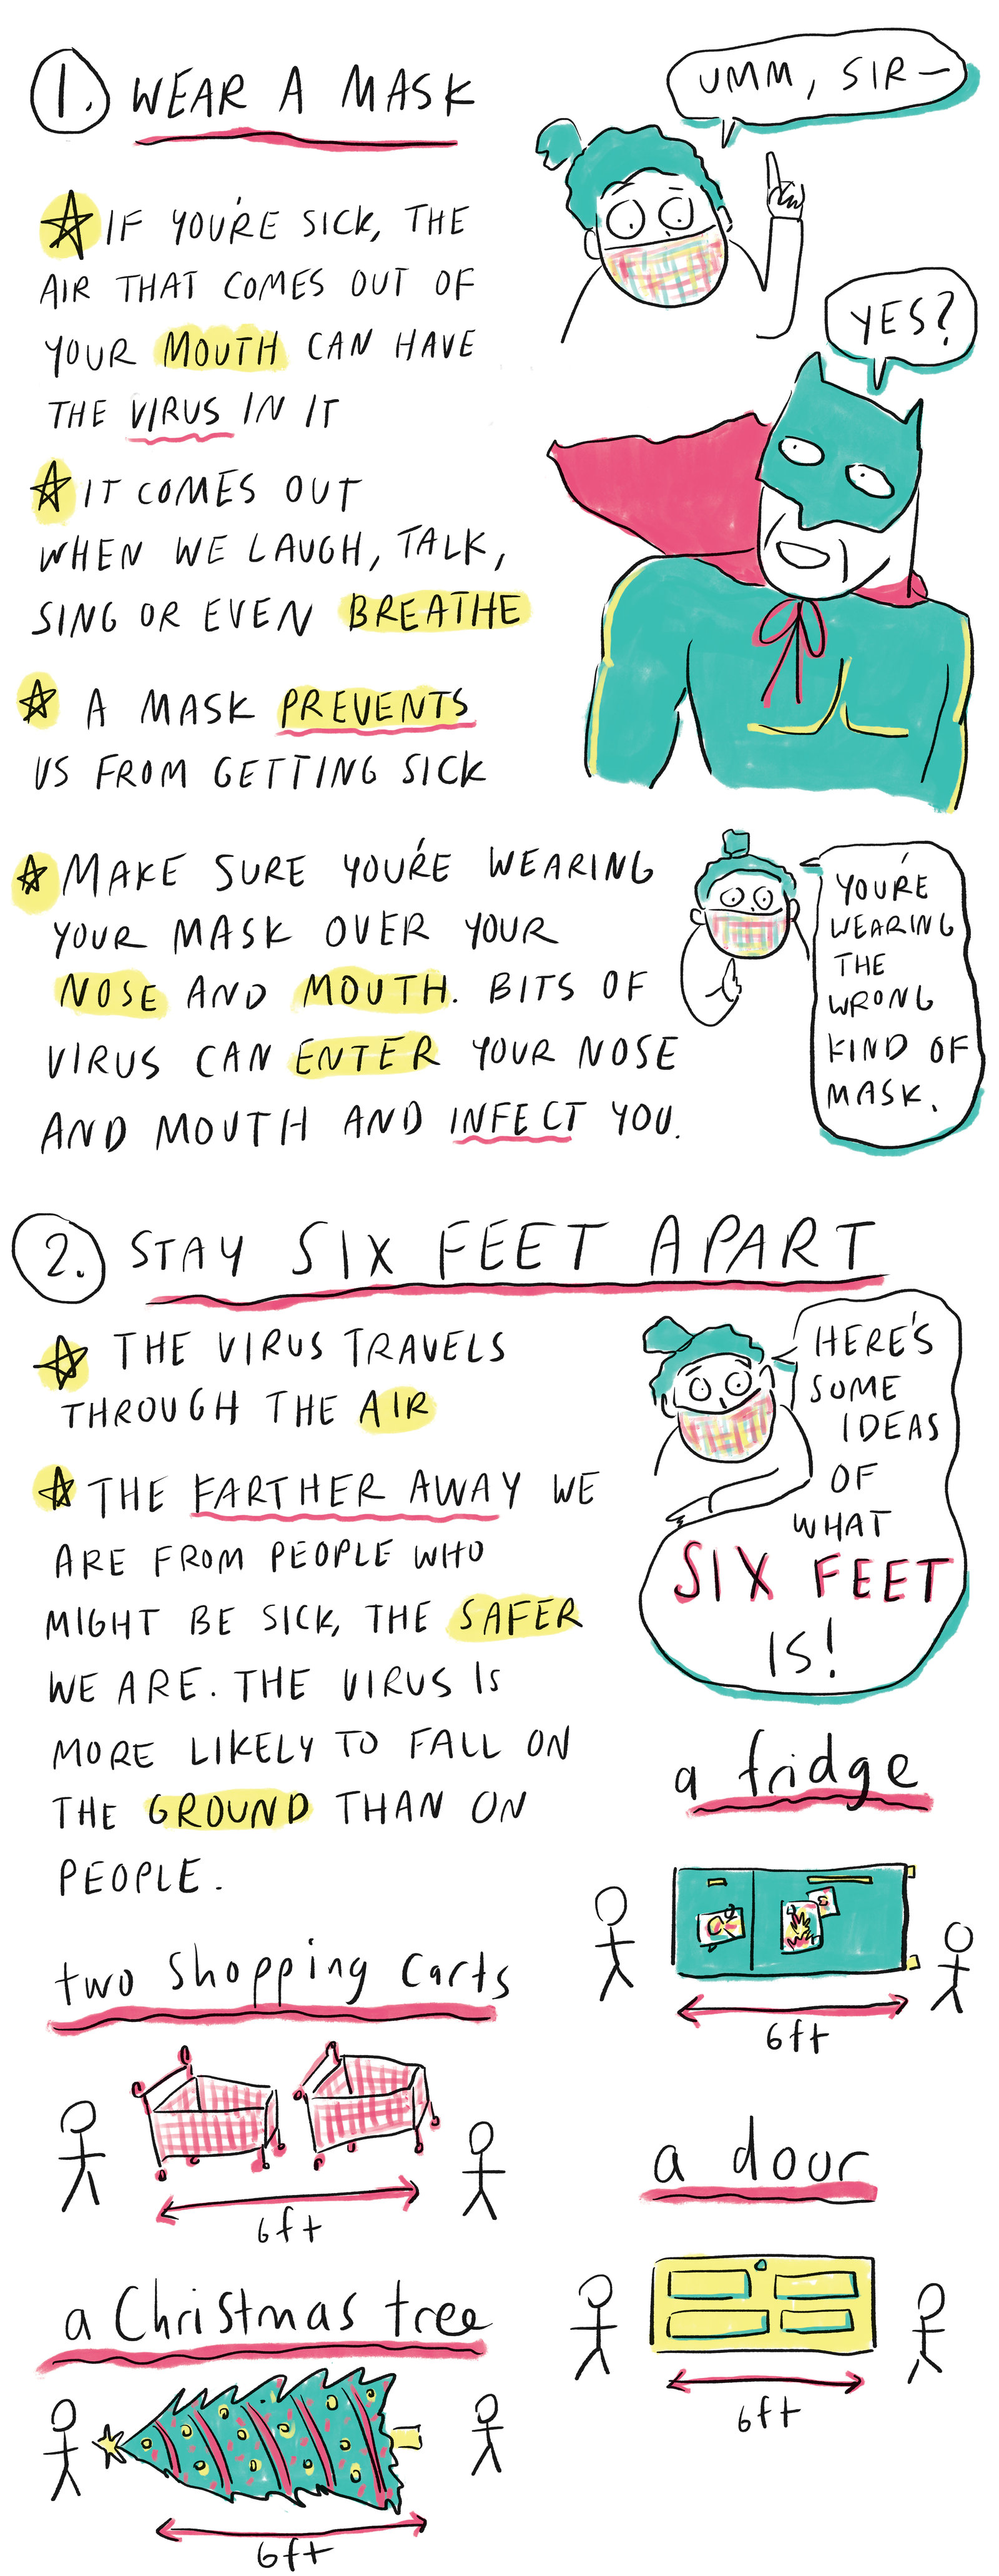 1. WEAR A MASK
UMM, SIR—
YES?
IF YOU'RE SICK, THE
AIR THAT COMES OUT OF
YOUR MOUTH CAN HAVE
THE VIRUS IN IT
IT COMES OUT
WHEN WE LAUGH, TALK,
SING OR EVEN BREATHE
A MASK PREVENTS
US FROM GETTING SICK
MAKE SURE YOU'RE WEARING
YOUR MASK OVER YOUR
NOSE AND MOUTH. BITS OF
VIRUS CAN ENTER YOUR NOSE
AND MOUTH AND INFECT YOU.
YOU'RE
WEARING
THE
WRONG
KIND OF
MASK.
2. STAY SIX FEET APART
THE VIRUS TRAVELS
THROUGH THE AIR
THE FARTHER AWAY WE
ARE FROM PEOPLE WHO
MIGHT BE SICK, THE SAFER
WE ARE. THE VIRUS IS
MORE LIKELY TO FALL ON
THE GROUND THAN ON
PEOPLE.
HERE'S
SOME
IDEAS
OF
WHAT
SIX FEET
IS!
a fridge
6ft
two shopping carts
6ft
a door
6ft
a Christmas tree
6ft